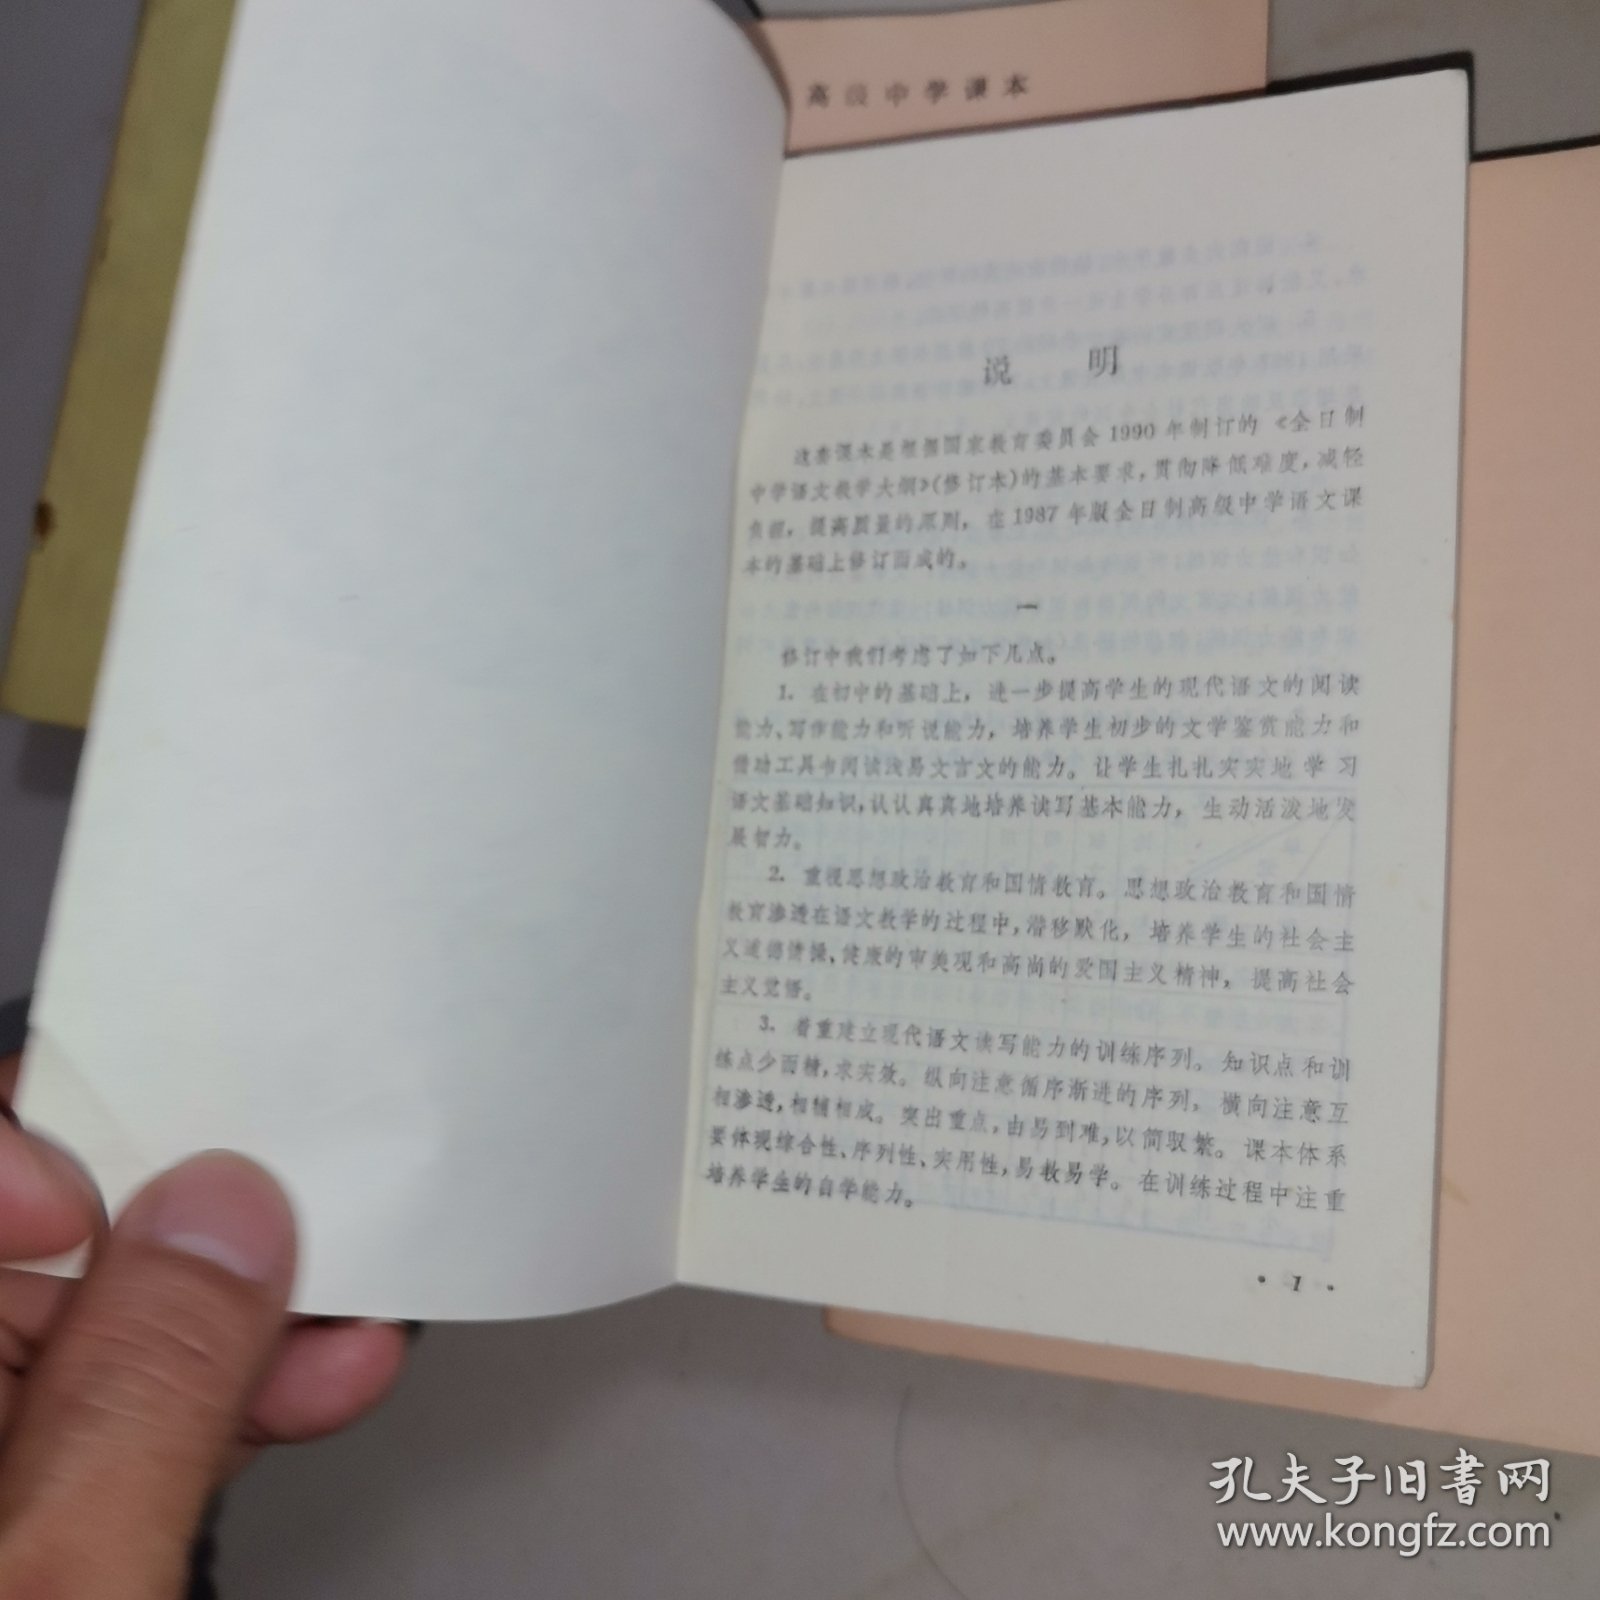 高级中学课本
说 明
这套课本是根据国家教育委员会1990年制订的《全日制
中学语文教学大纲》(修订本)的基本要求,贯彻降低难度,减轻
负担,提高质量的原则,在1987年版全日制高级中学语文课
本的基础上修订而成的。
一
修订中我们考虑了如下几点。
1. 在初中的基础上,进一步提高学生的现代语文的阅读
能力、写作能力和听说能力,培养学生初步的文学鉴赏能力和
借助工具书阅读浅易文言文的能力。让学生扎扎实实地学习
语文基础知识,认认真真地培养读写基本能力,生动活泼地发
展智力。
2. 重视思想政治教育和国情教育。思想政治教育和国情
教育渗透在语文教学的过程中,潜移默化,培养学生的社会主
义道德情操、健康的审美观和高尚的爱国主义精神,提高社会
主义觉悟。
3. 着重建立现代语文读写能力的训练序列。知识点和训
练点少而精,求实效。纵向注意循序渐进的序列,横向注意互
相渗透,相辅相成。突出重点,由易到难,以简驭繁。课本体系
要体现综合性、序列性、实用性,易教易学。在训练过程中注重
培养学生的自学能力。
• 1 •
孔夫子旧书网
www.kongfz.com